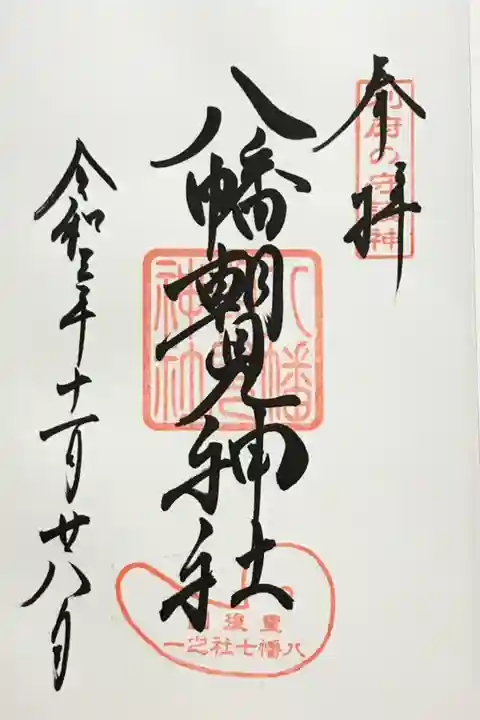 奉拝
別府の守護神
八幡朝見神社
八幡朝見神社
豊後国
八幡七社之一
令和三年十一月廿八日